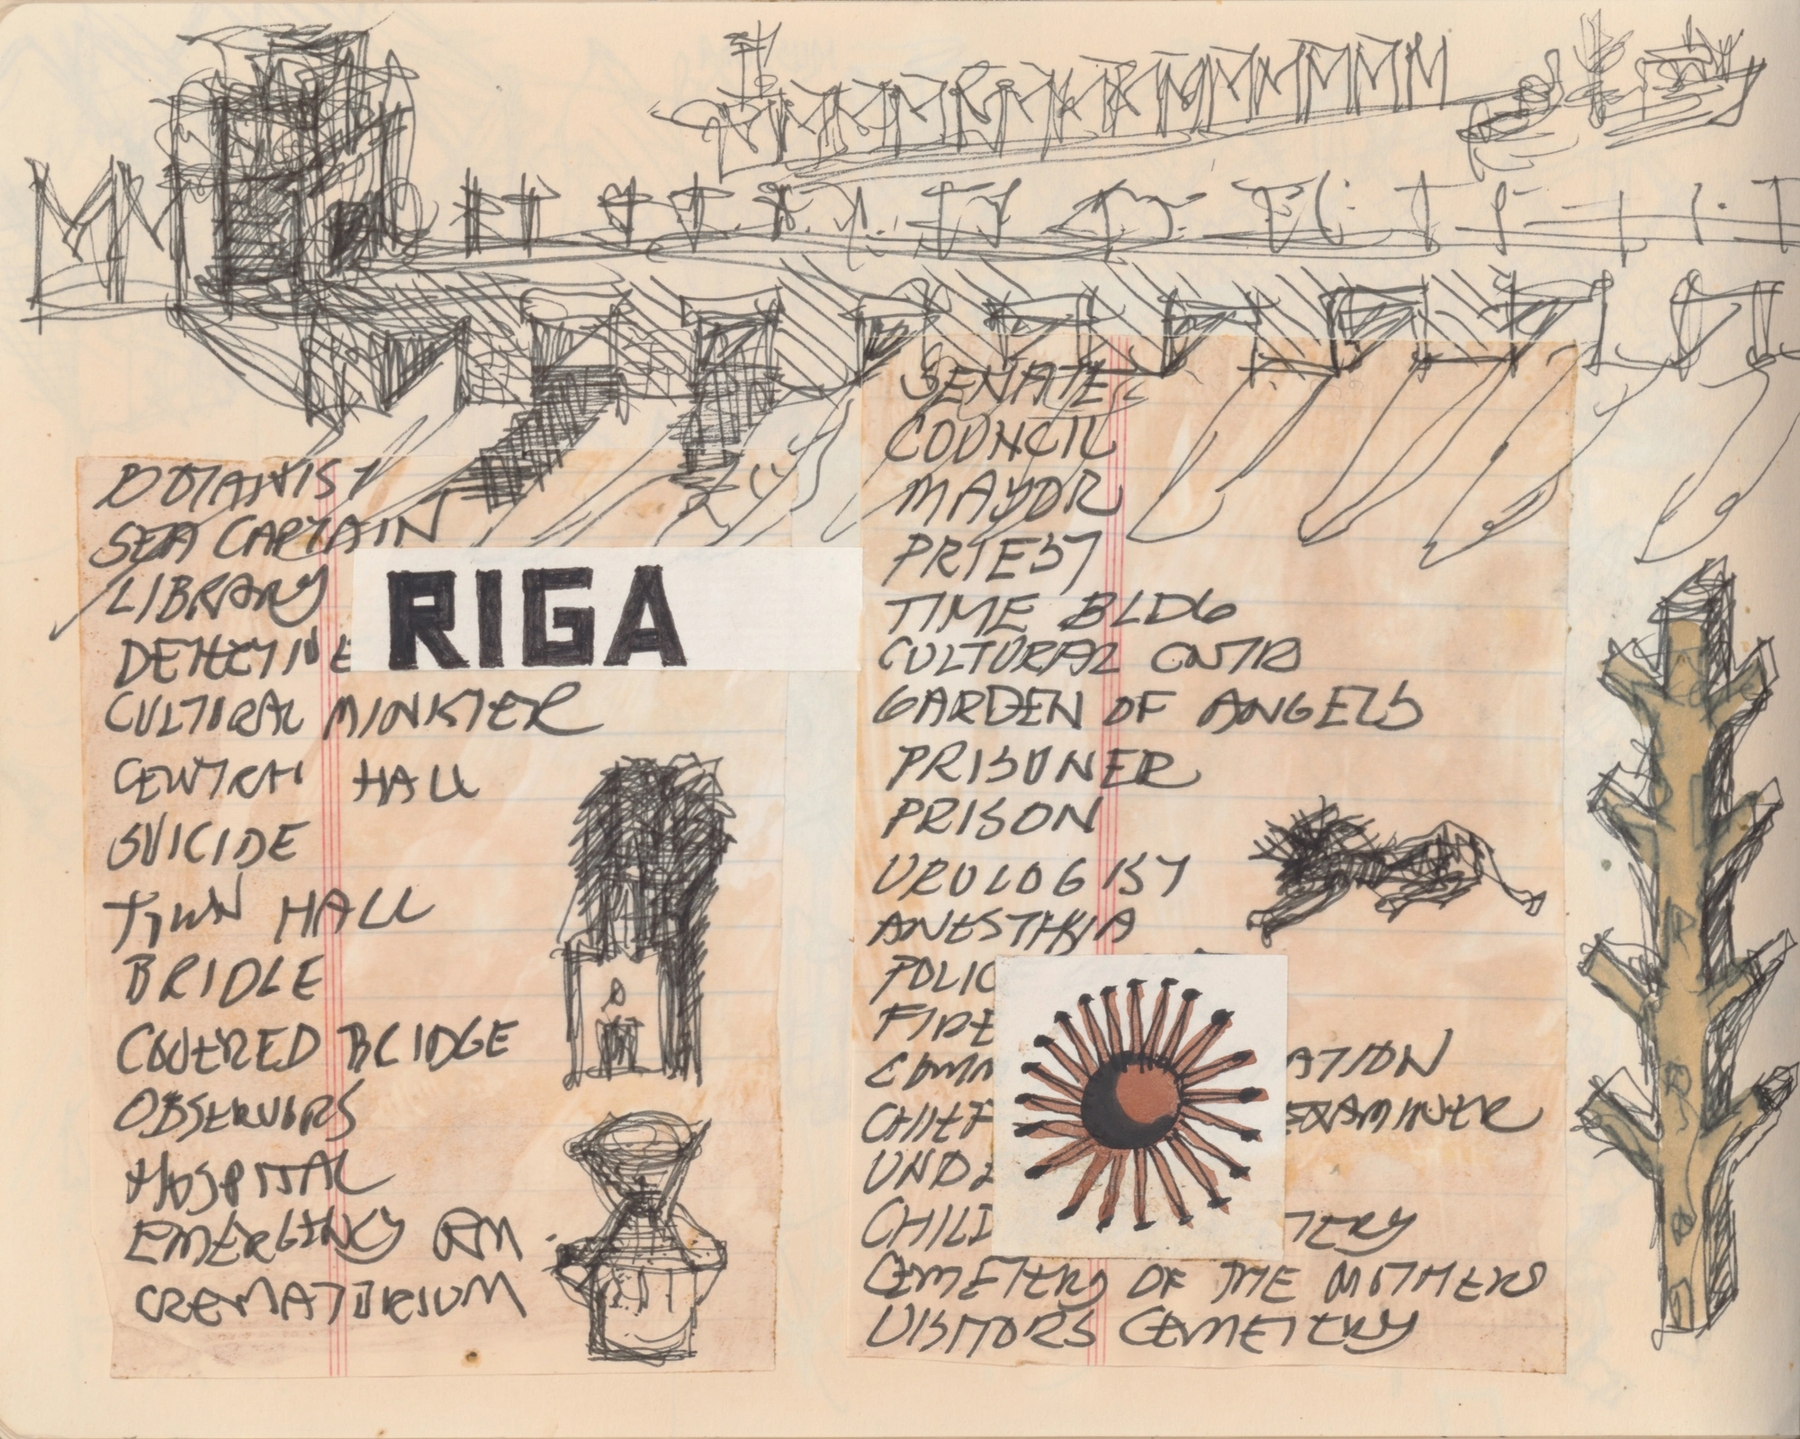 BOTANIST
SEA CAPTAIN
LIBRARY
DETECTIVE
RIGA
CULTURAL MINISTER
CENTRAL HALL
SUICIDE
TOWN HALL
BRIDLE
COVERED BRIDGE
OBSERVORS
HOSPITAL
EMERGENCY RM
CREMATORIUM
SENATE
COUNCIL
MAYOR
PRIEST
TIME BLDG
CULTURAL CNTR
GARDEN OF ANGELS
PRISONER
PRISON
UROLOGIST
ANESTHIA
POLIC
FIRE
COMM ATION
CHIEF EXAMINER
UNDE
CHILD TERY
CEMETERY OF THE MOTHERS
VISITORS CEMETERY